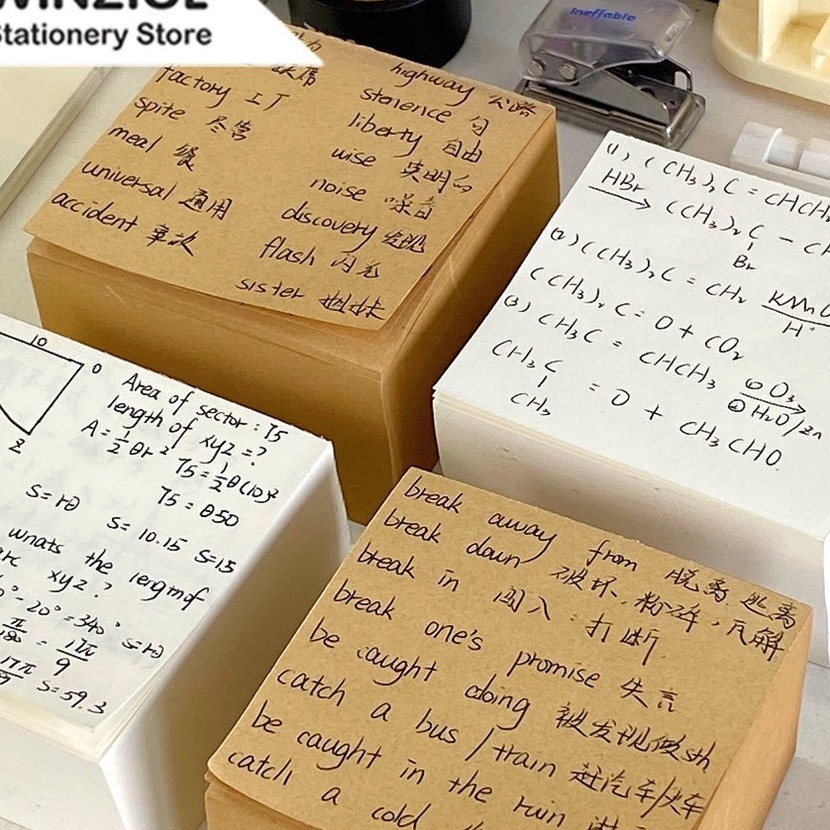 Stationery Store
ineffable
factory 工厂
spite 尽管
meal 餐
universal 通用
accident 事次
highway 公路
stenence 句
liberty 自由
wise 英明的
noise 噪音
discovery 发现
flash 闪光
sister 姐妹
(1) (CH3)2C = CHCH
HBr
(CH3)2 C - CH
Br
(2) (CH3)2C = CH2 KMnO
H+
(CH3)2 C = O + CO2
(3) CH3C = CHCH3 ① O3
② H2O/Zn
CH3C = O + CH3CHO
CH3
10
0
z
Area of sector : 75
length of xyz = ?
A = 1/2 θr²
75 = 1/2 θ(10)²
75 = θ50
S = rθ S = 10.15 S=15
whats the lengmof
xyz ?
- 20° = 340° S=rθ
= 17π/9
S = 59.3
break away from 脱离 逃离
break down 破坏, 粉碎, 瓦解
break in 闯入 : 打断
break one's promise 失言
be caught doing 被发现做sth
catch a bus / train 赶汽车/火车
be caught in the ruin
catch a cold